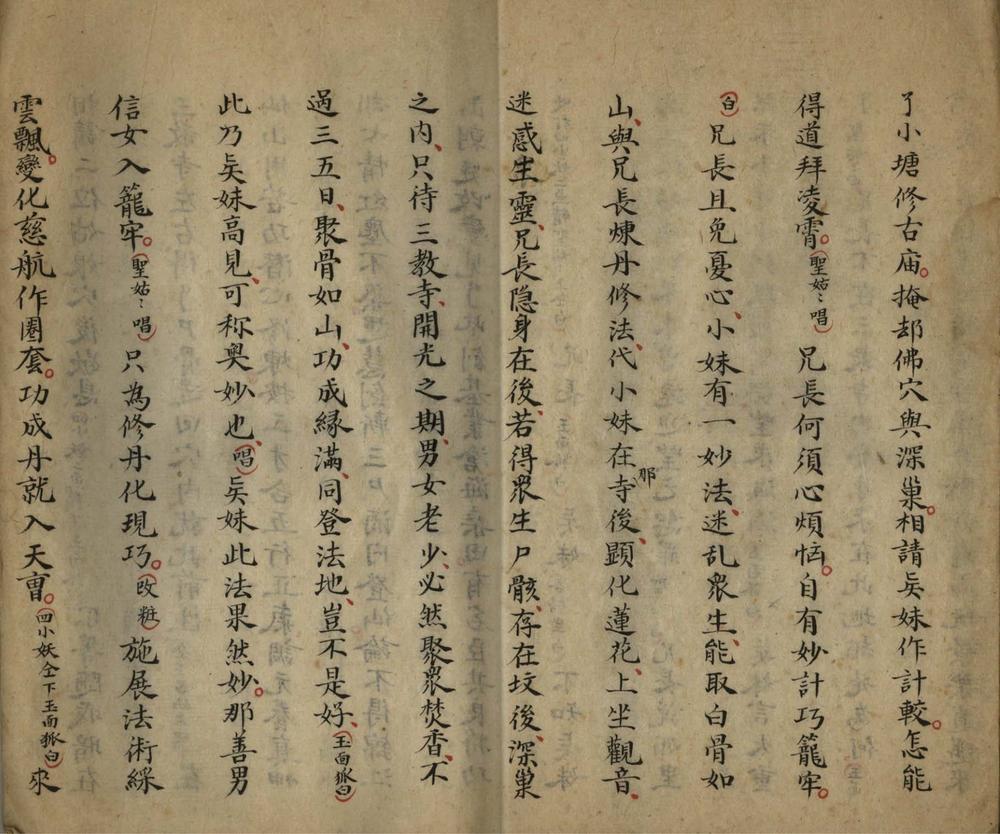 了小塘修古庙。掩却佛穴與深巢。相請矣妹作計較。怎能
得道拜凌霄。（聖姑〻唱）兄長何須心煩恼。自有妙計巧籠牢。
（白）兄長且免憂心、小妹有一妙法、迷乱衆生、能取白骨如
山、與兄長煉丹修法、代小妹在那寺後、顕化蓮花、上坐觀音、
迷惑生靈、兄長隐身在後、若得衆生尸骸、存在坟後、深巢
之内、只待三教寺、開光之期、男女老少、必然聚衆焚香、不
過三五日、聚骨如山、功成緣滿、同登法地、豈不是好、（玉面狐白）
此乃矣妹高見、可称奥妙也、（唱）矣妹此法果然妙。那善男
信女入籠牢。（聖姑〻唱）只為修丹化現巧。（改粧）施展法術綵
雲飄。變化慈航作圈套。功成丹就入天曹。（四小妖仝下玉面狐白）來